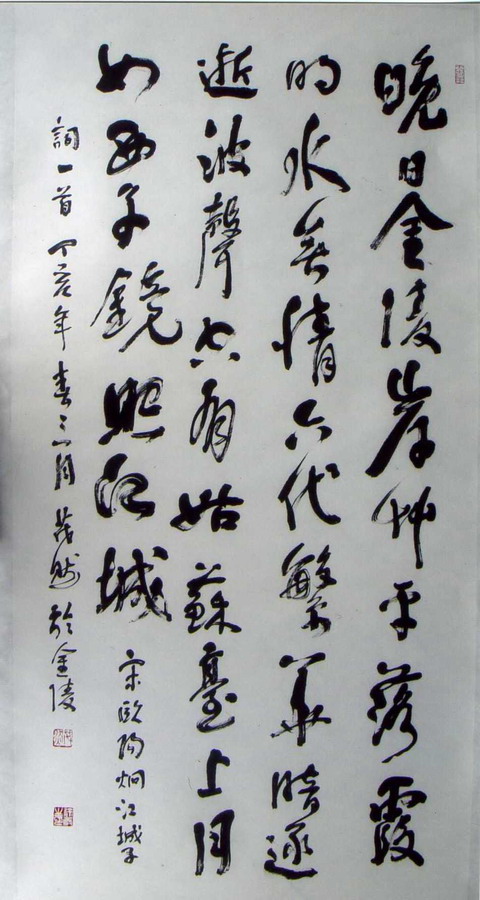 晚日金陵岸艸平落霞
明水無情六代繁華暗逐
逝波聲空有姑蘇臺上月
如西子鏡照江城
宋歐陽炯江城子
詞一首丁亥年春三月於金陵